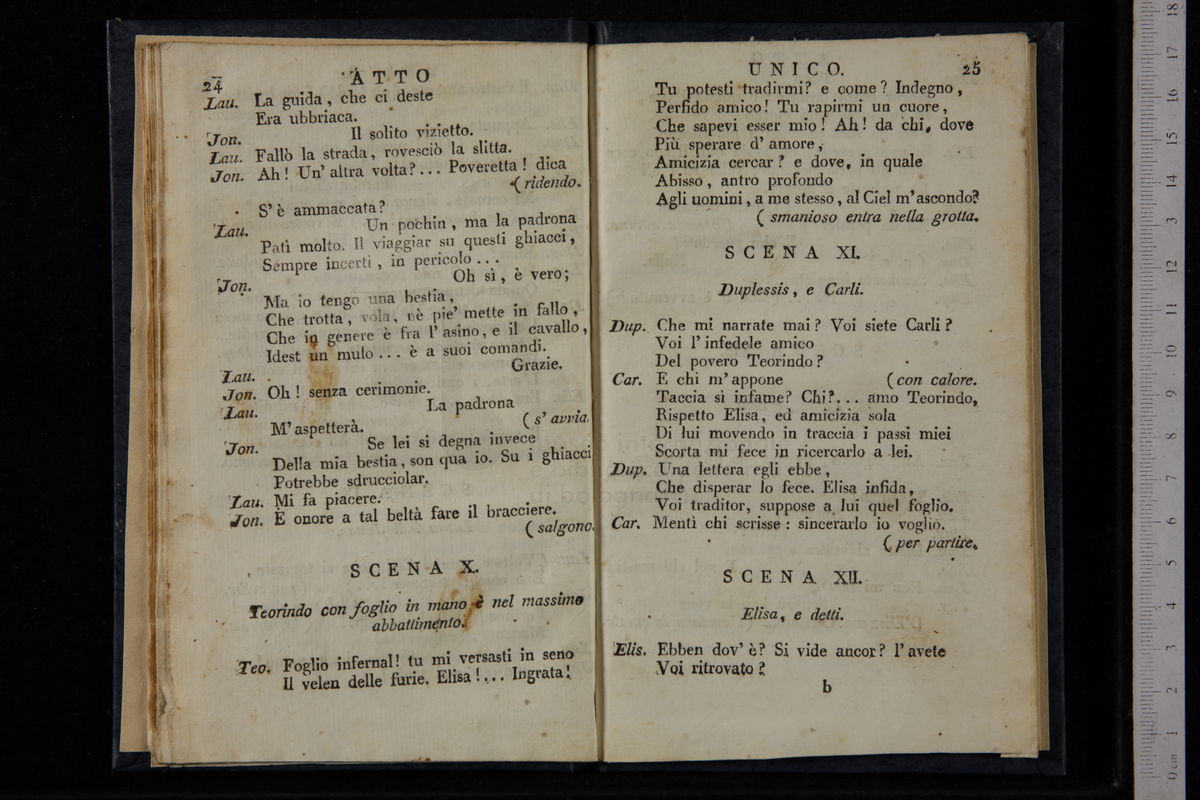 24 ATTO
Lau. La guida, che ci deste
Era ubbriaca.
Jon. Il solito vizietto.
Lau. Fallò la strada, rovesciò la slitta.
Jon. Ah! Un' altra volta?... Poveretta! dica
( ridendo.
S' è ammaccata?
Lau. Un pochin, ma la padrona
Patì molto. Il viaggiar su questi ghiacci,
Sempre incerti, in pericolo ...
Jon. Oh sì, è vero;
Ma io tengo una bestia,
Che trotta, vola, nè pie' mette in fallo,
Che in genere è fra l' asino, e il cavallo,
Idest un mulo ... è a suoi comandi.
Lau. Grazie.
Jon. Oh! senza cerimonie.
Lau. La padrona
M' aspetterà. ( s' avvia.
Jon. Se lei si degna invece
Della mia bestia, son qua io. Su i ghiacci
Potrebbe sdrucciolar.
Lau. Mi fa piacere.
Jon. E onore a tal beltà fare il bracciere.
( salgono.
SCENA X.
Teorindo con foglio in mano è nel massimo
abbattimento.
Teo. Foglio infernal! tu mi versasti in seno
Il velen delle furie. Elisa!... Ingrata!
UNICO. 25
Tu potesti tradirmi? e come? Indegno,
Perfido amico! Tu rapirmi un cuore,
Che sapevi esser mio! Ah! da chi, dove
Più sperare d' amore,
Amicizia cercar? e dove, in quale
Abisso, antro profondo
Agli uomini, a me stesso, al Ciel m' ascondo?
( smanioso entra nella grotta.
SCENA XI.
Duplessis, e Carli.
Dup. Che mi narrate mai? Voi siete Carli?
Voi l' infedele amico
Del povero Teorindo?
Car. E chi m' appone ( con calore.
Taccia sì infame? Chi?... amo Teorindo,
Rispetto Elisa, ed amicizia sola
Di lui movendo in traccia i passi miei
Scorta mi fece in ricercarlo a lei.
Dup. Una lettera egli ebbe,
Che disperar lo fece. Elisa infida,
Voi traditor, suppose a lui quel foglio.
Car. Mentì chi scrisse: sincerarlo io voglio.
( per partire.
SCENA XII.
Elisa, e detti.
Elis. Ebben dov' è? Si vide ancor? l' avete
Voi ritrovato?
b